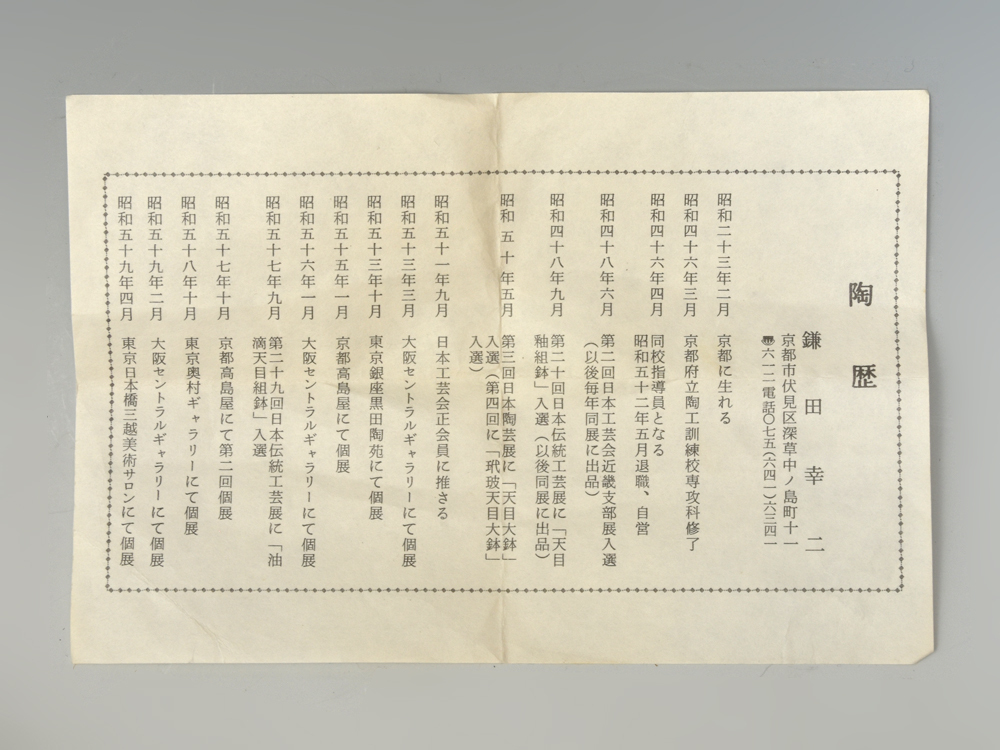 陶歴
鎌田幸二
京都市伏見区深草中ノ島町十一
〠六一二電話〇七五(六四一)六三四一
昭和二十三年二月 京都に生れる
昭和四十六年三月 京都府立陶工訓練校専攻科修了
昭和四十六年四月 同校指導員となる
昭和五十二年五月退職、自営
昭和四十八年六月 第二回日本工芸会近畿支部展入選
(以後毎年同展に出品)
昭和四十八年九月 第二十回日本伝統工芸展に「天目
釉組鉢」入選(以後同展に出品)
昭和五十年五月 第三回日本陶芸展に「天目大鉢」
入選(第四回に「玳玻天目大鉢」
入選)
昭和五十一年九月 日本工芸会正会員に推さる
昭和五十三年三月 大阪セントラルギャラリーにて個展
昭和五十三年十月 東京銀座黒田陶苑にて個展
昭和五十五年一月 京都高島屋にて個展
昭和五十六年一月 大阪セントラルギャラリーにて個展
昭和五十七年九月 第二十九回日本伝統工芸展に「油
滴天目組鉢」入選
昭和五十七年十月 京都高島屋にて第二回個展
昭和五十八年十月 東京奥村ギャラリーにて個展
昭和五十九年二月 大阪セントラルギャラリーにて個展
昭和五十九年四月 東京日本橋三越美術サロンにて個展